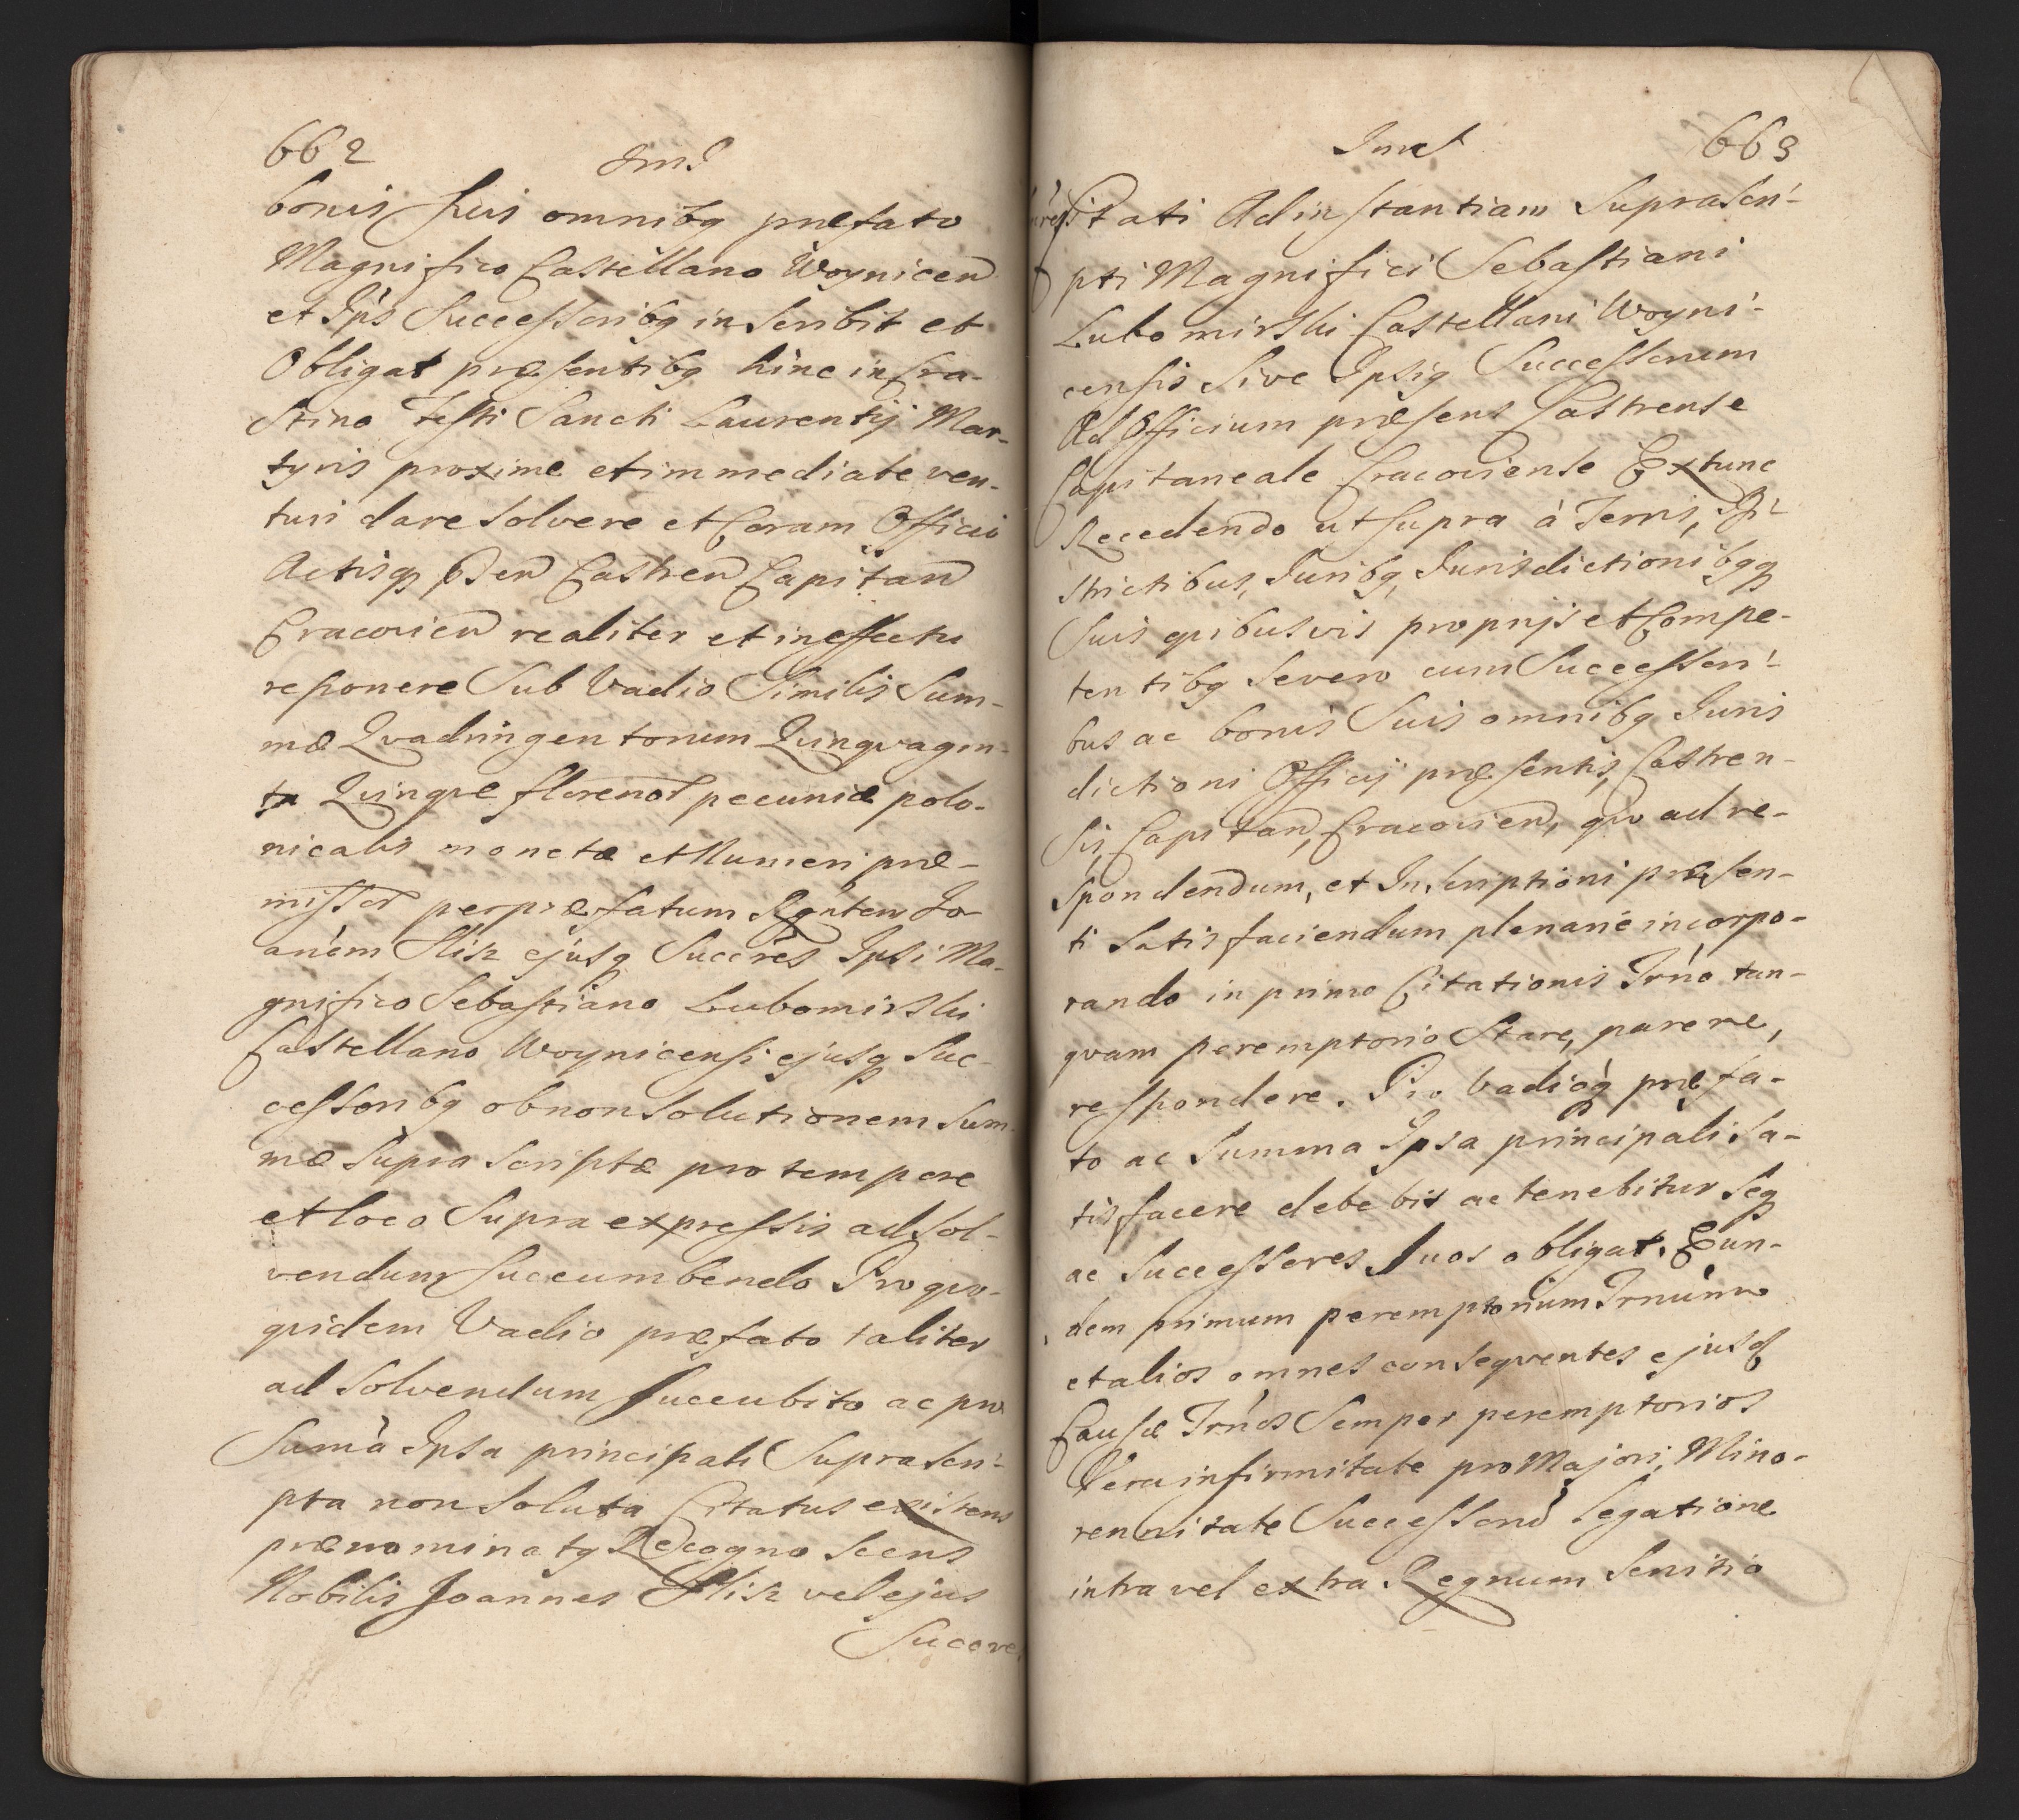 662
Jms
bonis suis omnibq præfato
Magnifico Castellano Woynicen
et Ips Successoribq inscribit et
Obligat præsentibq hinc in Cra-
stino Festi Sancti Laurentij Mar-
tyris proxime et immediate ven-
turi dare solvere et Coram Officio
Actisq Castren Capitan
Cracovien realiter et in effectu
reponere Sub Vadio Similis Sum-
mæ Qvadringentorum Qvinqvagin-
ta Qvinqve florenor pecuniæ polo-
nicalis monetæ et Numeri præ-
missor per præfatum Rgnten Jo-
aném Slisz ejúsq Succres Ipsi Ma-
gnifico Sebastiano Lubomirski
Castellano Woynicensi ejusq Suc-
cessoribq ob non Solutionem Sum-
mæ Supra Scriptæ pro tempore
et loco Supra expressis ad Sol-
vendum Succumbendo Pro qvo-
qvidem Vadio præfato taliter
ad Solvendum Succubito ac pro
Sumà Ipsa principali Suprascri-
pta non Soluta Citatus existens
prænominatq Recognoscens
Nobilis Joannes Slisz vel ejus
Succre
Jmst
663
Citati Ad instantiam Suprascri-
pti Magnifici Sebastiani
Lubomirski Castellani Woyni-
censis Sive Ipsiq Successorum
Ad Officium præsens Castrense
Capitaneale Cracoviense Extunc
Recedendo ut Supra à Terris, Di-
strictibus, Juribq, Jurisdictionibqq
Suis qvibusvis proprijs et Compe-
tentibq Severo cum Successori-
bus ac bonis Suis omnibq Juris
dictioni Officij præsentis, Castren-
sis, Capitan, Cracovien, qvo ad re-
spondendum, et Inscriptioni præsen-
ti Satisfaciendum plenariè incorpo-
rando in primo Citationis Trno tan-
qvam peremptorio Stare, parere,
respondere. Pro Vadioq præfa-
to ac Summa Ipsa principali Sa-
tisfacere debebit ac tenebitur Seq
ac Successores Suos obligat. Eun-
dem primum peremptorium Trnum
et alios omnes conseqventes ejusq
Causæ Trnos Semper peremptorios
Vera infirmitate pro Majori, Mino-
rennitate Successorū legatione
intra vel extra Regnum Servitio